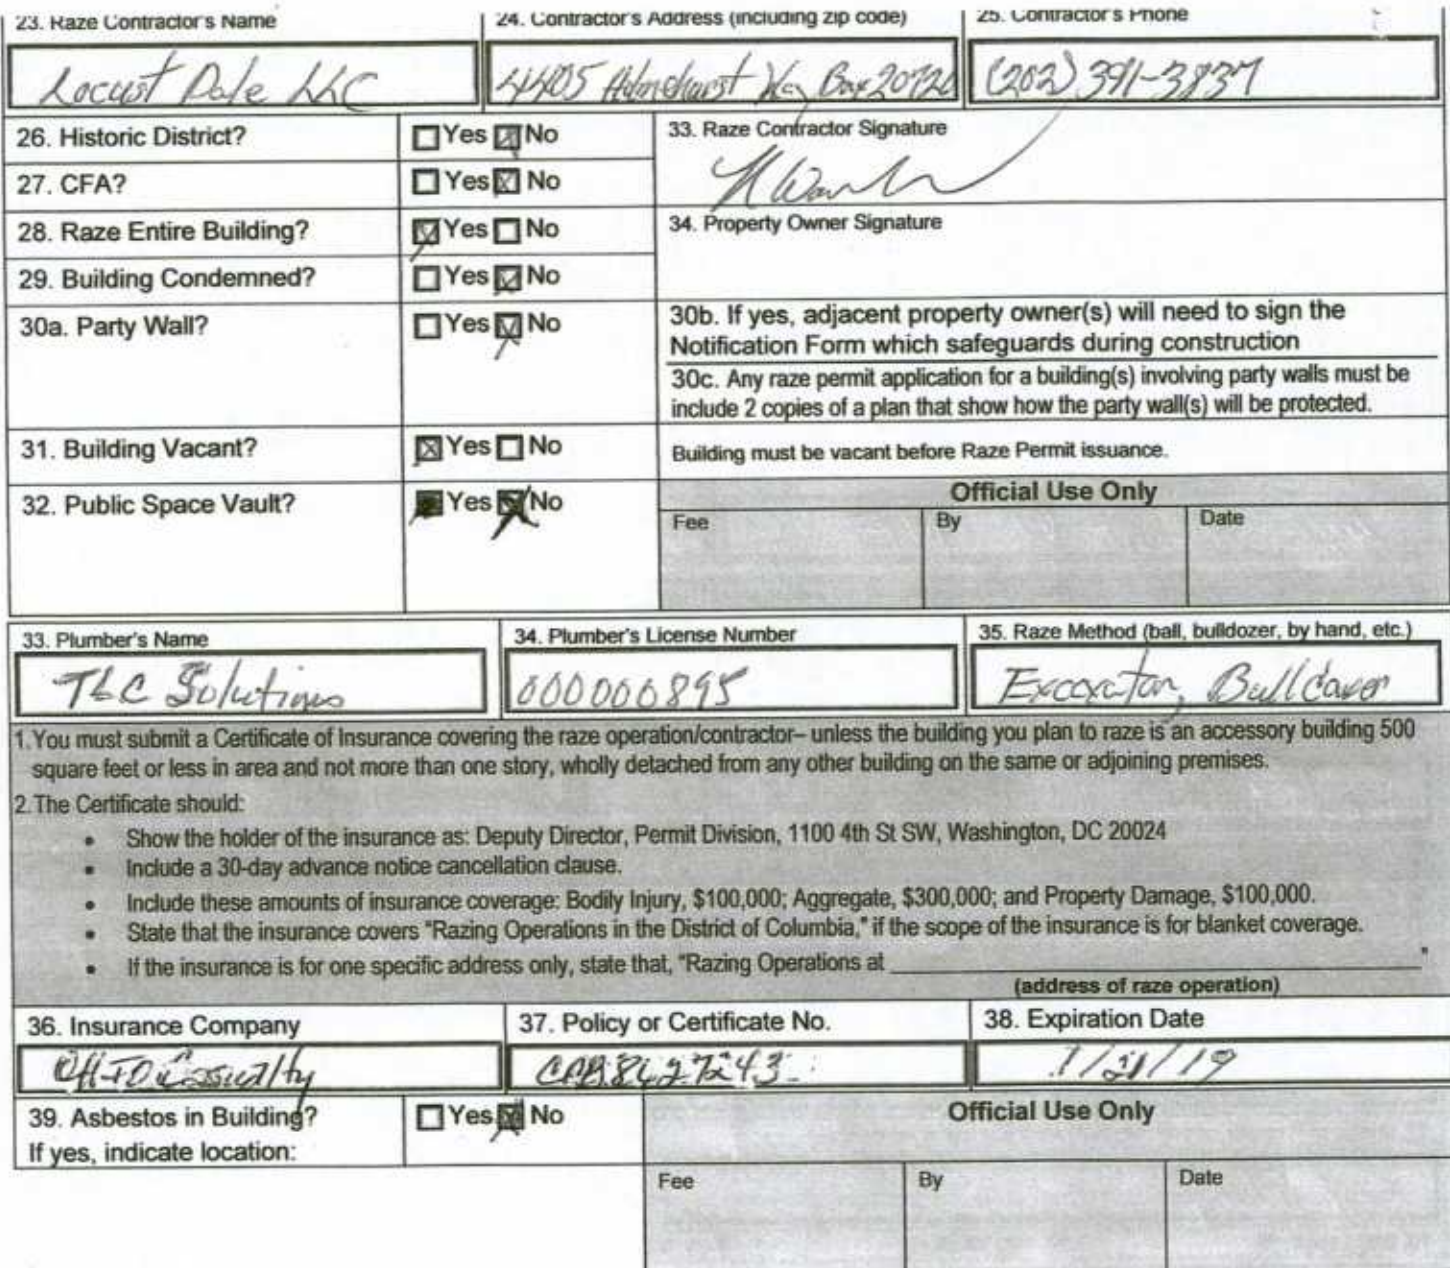 23. Raze Contractor's Name
24. Contractor's Address (including zip code)
25. Contractor's Phone
Locust Dale LLC
4405 Holmehurst Way 20720
(202) 391-3837
26. Historic District? Yes No
33. Raze Contractor Signature
27. CFA? Yes No
28. Raze Entire Building? Yes No
34. Property Owner Signature
29. Building Condemned? Yes No
30a. Party Wall? Yes No
30b. If yes, adjacent property owner(s) will need to sign the
Notification Form which safeguards during construction
30c. Any raze permit application for a building(s) involving party walls must be
include 2 copies of a plan that show how the party wall(s) will be protected.
31. Building Vacant? Yes No
Building must be vacant before Raze Permit issuance.
32. Public Space Vault? Yes No
Official Use Only
Fee By Date
33. Plumber's Name
34. Plumber's License Number
35. Raze Method (ball, bulldozer, by hand, etc.)
TLC Solutions
000000895
Excavator, Bulldozer
1. You must submit a Certificate of Insurance covering the raze operation/contractor– unless the building you plan to raze is an accessory building 500
square feet or less in area and not more than one story, wholly detached from any other building on the same or adjoining premises.
2. The Certificate should:
• Show the holder of the insurance as: Deputy Director, Permit Division, 1100 4th St SW, Washington, DC 20024
• Include a 30-day advance notice cancellation clause.
• Include these amounts of insurance coverage: Bodily Injury, $100,000; Aggregate, $300,000; and Property Damage, $100,000.
• State that the insurance covers "Razing Operations in the District of Columbia," if the scope of the insurance is for blanket coverage.
• If the insurance is for one specific address only, state that, "Razing Operations at ____________"
(address of raze operation)
36. Insurance Company
37. Policy or Certificate No.
38. Expiration Date
OHIO Casualty
39. Asbestos in Building? Yes No
If yes, indicate location:
Official Use Only
Fee By Date